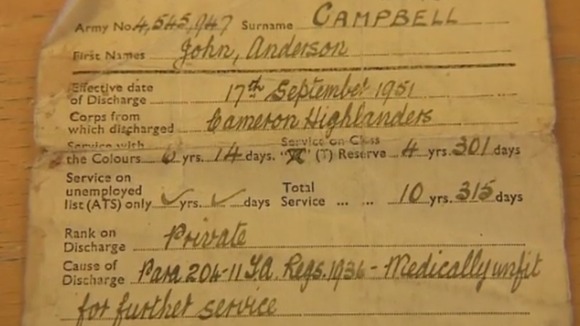 Army No. 4,545,947 Surname CAMPBELL
First Names John, Anderson
Effective date
of Discharge 17th September 1951
Corps from
which discharged Cameron Highlanders
Service with Service on Class
the Colours 6 yrs. 14 days. (T) Reserve 4 yrs. 301 days
Service on
unemployed Total
list (ATS) only ✓ yrs. ✓ days Service ... ... 10 yrs. 315 days.
Rank on
Discharge Private
Cause of
Discharge Para 204-11 T.A. Regs. 1936 - Medically unfit
for further service